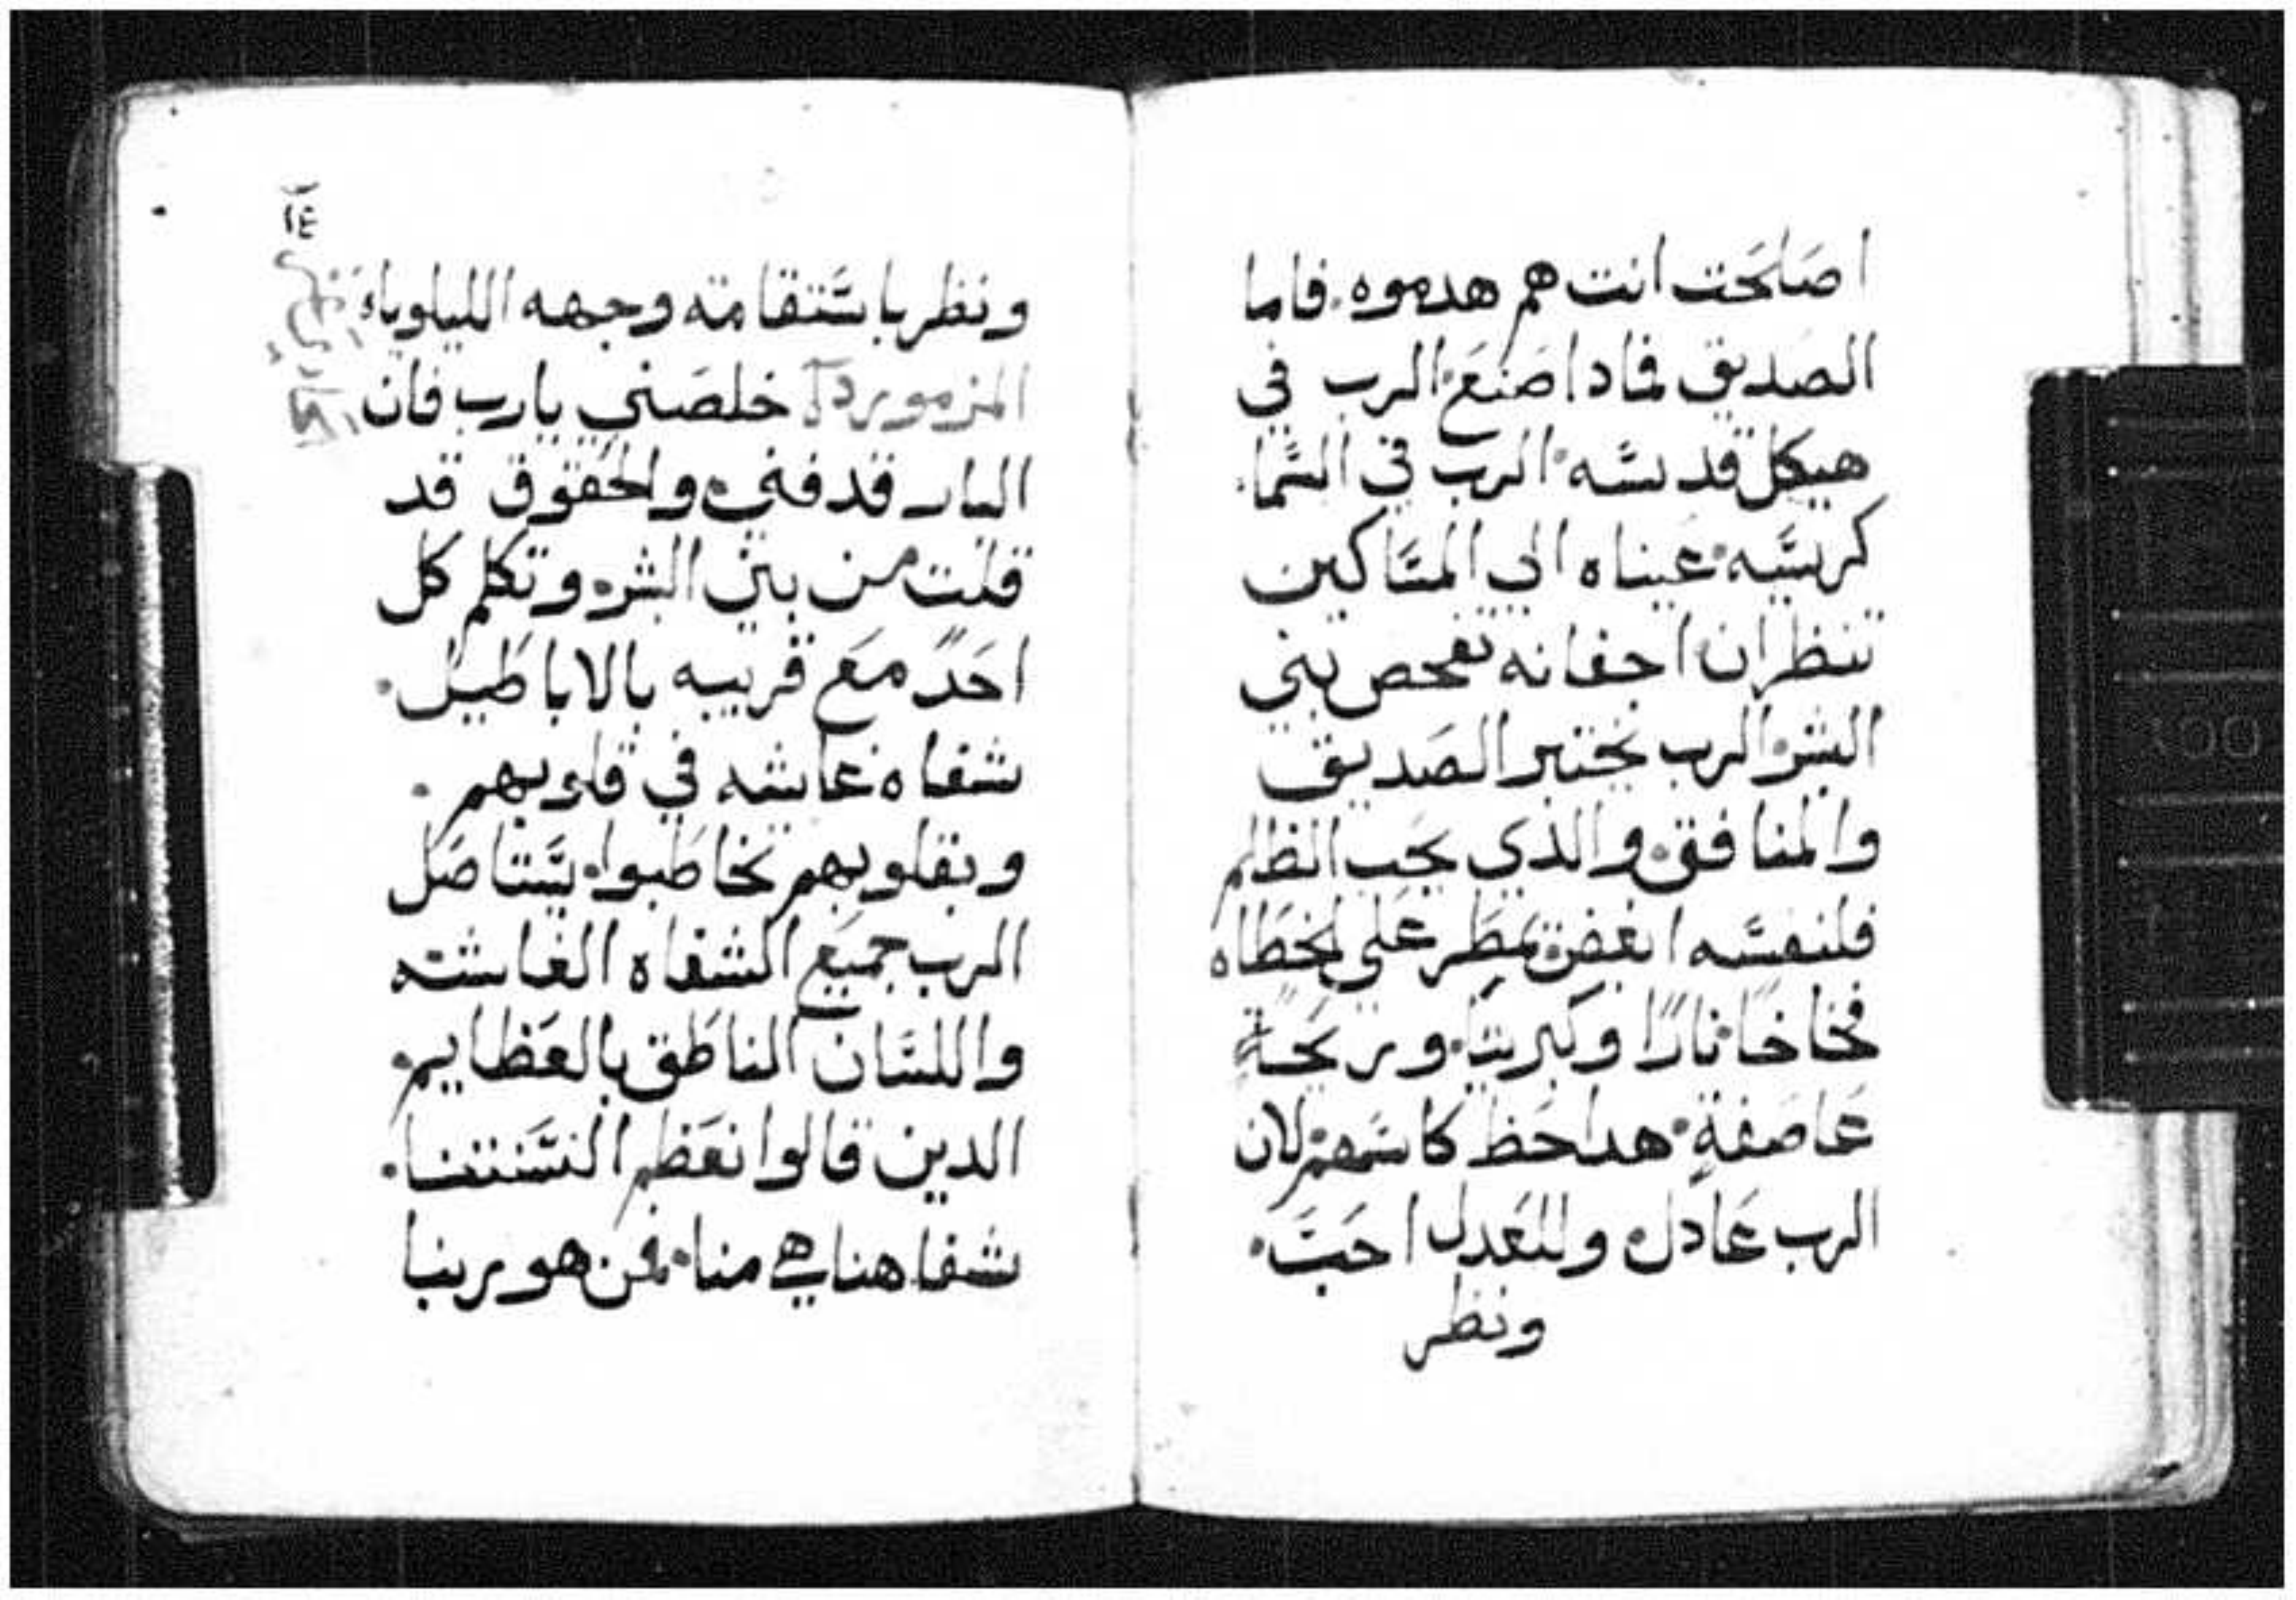 اصَلَحَت انت هم هدموه. فاما
الصديق فمادا صَنَعَ الرب في
هيكل قدسَّه الرب في السَّما.
كرسيَّه عيناه الي المسَّاكين
تنظران اجفانه تفحص بني
البشر الرب يختبر الصَديق
والمنافق والذي يحب الظلم
فلنفسَّه ابغض يمطَر عَلي الخطَاه
فخاخاً ناراً وكبريتاً وريحَةٍ
عَاصَفةٍ هدا حَظ كاسَهم لان
الرب عَادل وللعَدل احَبَّ.
ونظر
١٤
ونظر باسَّتقامته وجهه الليلوياء
المزمور خلصَني يارب فان
البار قد فني والحَقوق قد
قلت من بين البشر وتكلم كل
احَدً مَع قريبه بالاباطَيل.
شفاه غاشه في قلوبهم.
وبقلوبهم تخاطَبوا يسَّتاصَل
الرب جميَع الشفاه الغاشه
واللسَّان الناطَق بالعَظايم.
الدين قالوا نعَظم السَّنتنا.
شفاهنا هي منا فمن هو ربنا